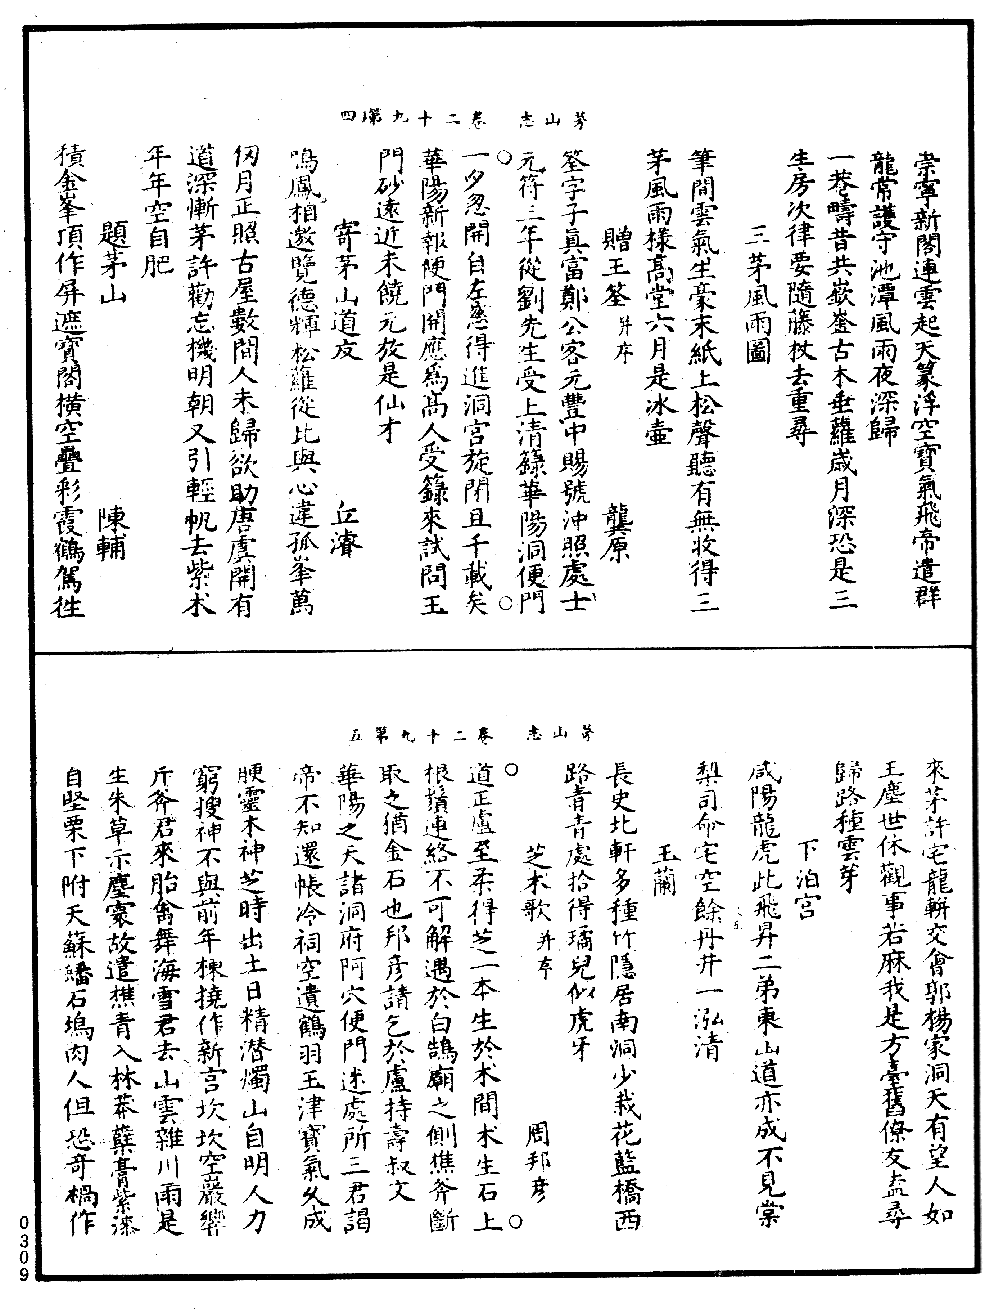 茅山志　卷二十九第四
崇寧新閣連雲起天篆浮空寶氣飛帝遣群
龍常護守池潭風雨夜深歸
一菴疇昔共嶔崟古木垂蘿歲月深恐是三
生房次律要隨藤杖去重尋
三茅風雨圖
筆間雲氣生豪末紙上松聲聽有無收得三
茅風雨樣高堂六月是冰壺
贈王筌并序　龔原
筌字子真富鄭公客元豐中賜號沖照處士
元符三年從劉先生受上清籙華陽洞便門
一夕忽開自左慈得進洞宮旋閉且千載矣
華陽新報便門開應爲高人受籙來試問玉
門砂遠近未饒元放是仙才
寄茅山道友　丘濬
鳴鳳相邀覽德輝松蘿從比與心違孤峯萬
仞月正照古屋數間人未歸欲助唐虞開有
道深慚茅許勸忘機明朝又引輕帆去紫朮
年年空自肥
題茅山　陳輔
積金峯頂作屏遮寶閣橫空疊彩霞鶴駕徃
茅山志　卷二十九第五
來茅許宅龍輧交會郭楊家洞天有望人如
玉塵世休觀事若麻我是方臺舊僚友盍尋
歸路種雲芽
下泊宮
咸陽龍虎此飛昇二弟東山道亦成不見棠
梨司命宅空餘丹井一泓清
玉蘭
長史北軒多種竹隱居南洞少栽花藍橋西
路青青處拾得瓀兒似虎牙
芝朮歌并序　周邦彦
道正盧至柔得芝一本生於朮間朮生石上
根鬚連絡不可解遇於白鵠廟之側樵斧斷
取之猶金石也邦彦請乞於盧持壽叔文
華陽之天諸洞府阿穴便門迷處所三君謁
帝不知還帳冷祠空遺鶴羽玉津寶氣久成
腴靈木神芝時出土日精潜燭山自明人力
窮搜神不與前年棟撓作新宮坎坎空巖響
斤斧君來胎禽舞海雪君去山雲雜川雨是
生朱草示麈豪故遣樵青入林莽蘗膏紫漆
自堅栗下附天蘇繙石塢肉人但恐奇禍作
0309